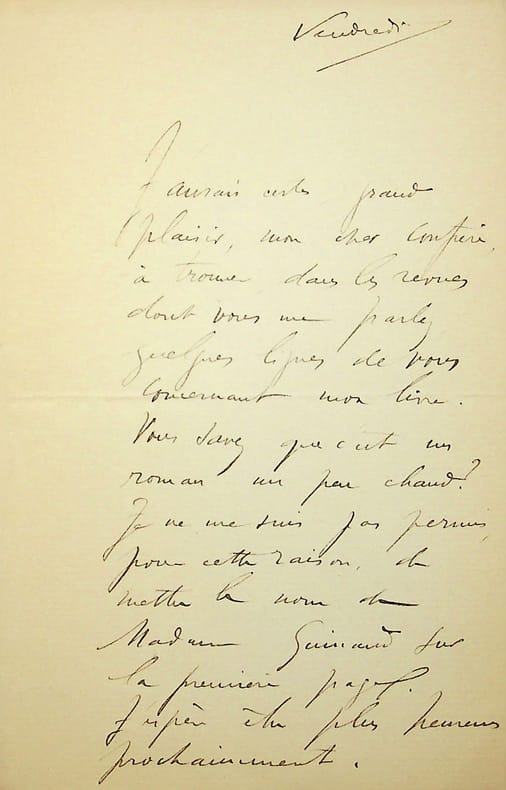 Vendredi
J'aurais certes grand
plaisir, mon cher confrère,
à trouver dans les revues
dont vous me parlez
quelques lignes de vous
concernant mon livre.
Vous savez que c'est un
roman un peu chaud?
Je ne me suis pas permis,
pour cette raison, de
mettre le nom de
Madame Guimard sur
la première page.
J'espère être plus heureux
prochainement.